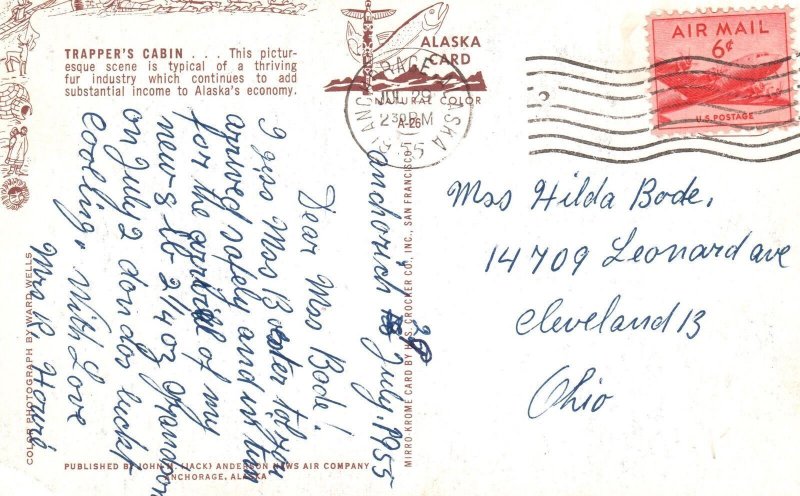 TRAPPER'S CABIN . . . This pictur-
esque scene is typical of a thriving
fur industry which continues to add
substantial income to Alaska's economy.
ALASKA
CARD
NATURAL COLOR
A-26
ANCHORAGE ALASKA
JUL 29
2 30 PM
1955
AIR MAIL
6¢
U.S. POSTAGE
Anchorich July, 29 1955
Dear Mss Bode!
I gess Mss told you
arrived safely and in time
for the of my
new-s 8 lb 2 1/4 oz Grandson
on July 2 don dos luckt
cooling, With Love
Mrs R.
Mss Hilda Bode,
14709 Leonard ave
Cleveland 13
Ohio
COLOR PHOTOGRAPH BY WARD WELLS
PUBLISHED BY JOHN H. (JACK) ANDERSON NEWS AIR COMPANY
ANCHORAGE, ALASKA
MIRRO-KROME CARD BY H.S. CROCKER CO., INC., SAN FRANCISCO